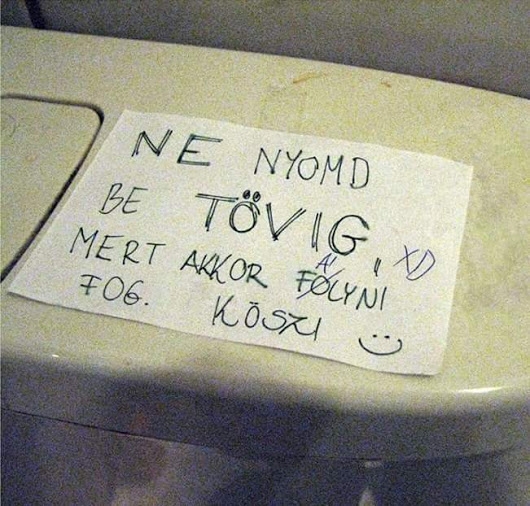 NE NYOMD
BE TÖVIG,
MERT AKKOR FOLYNI XD
FOG. KÖSZI